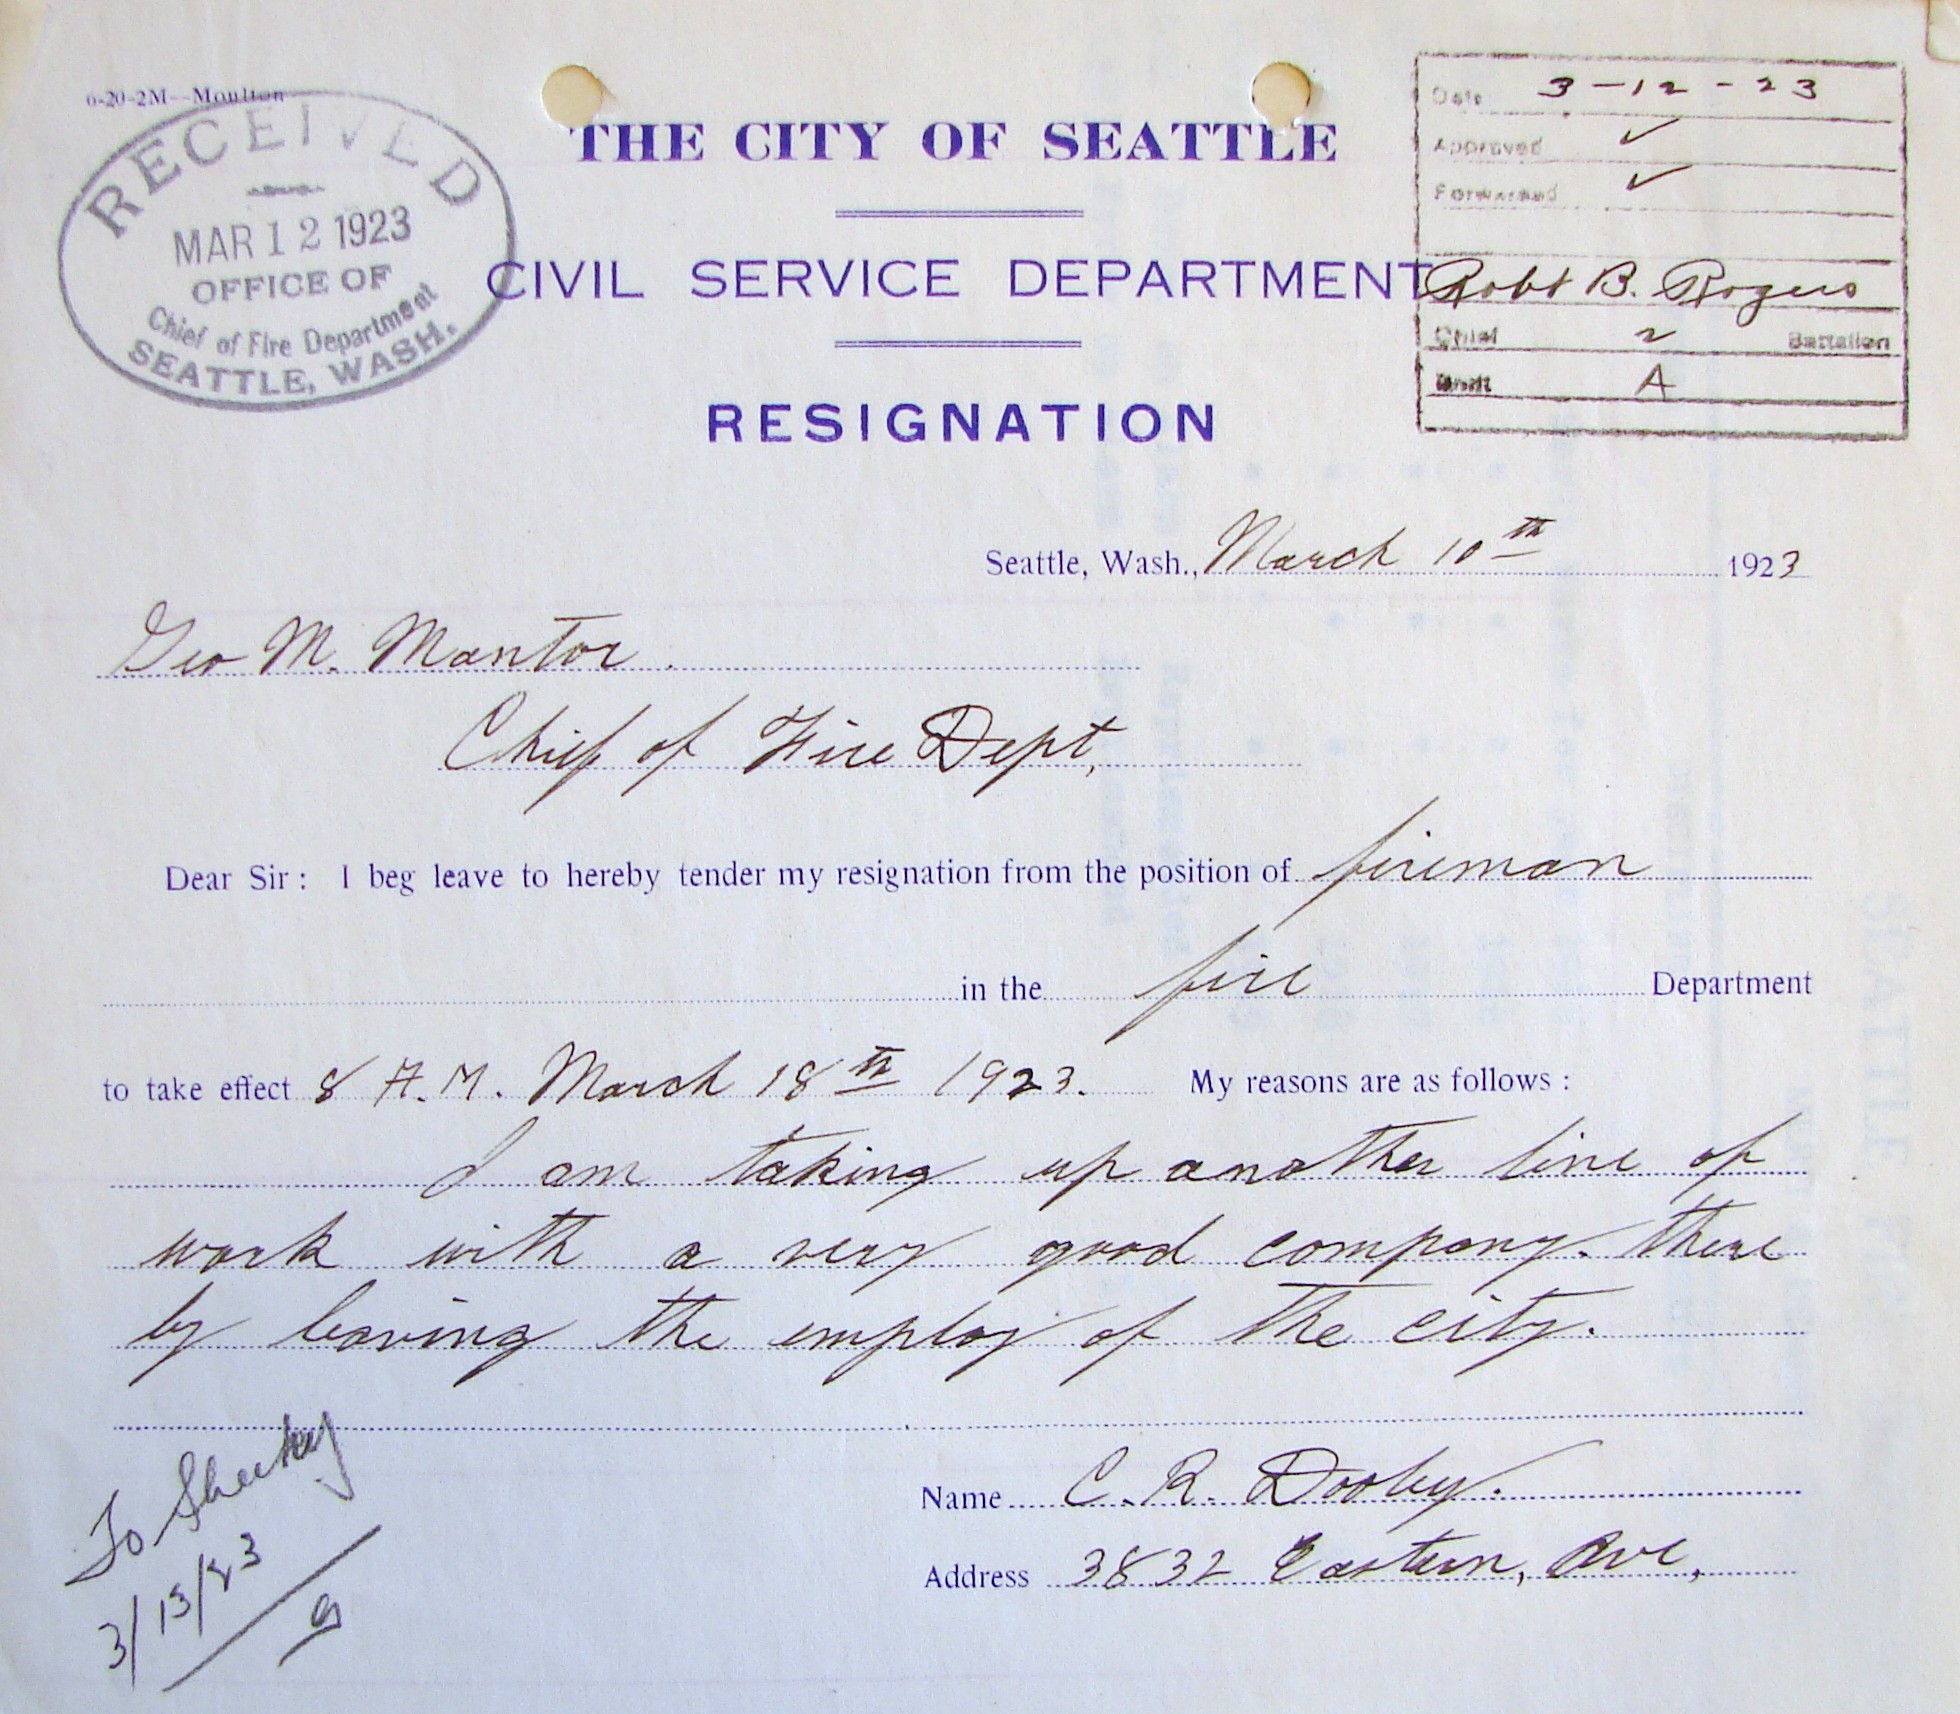 6-20-2M—Moulton
RECEIVED
MAR 12 1923
OFFICE OF
Chief of Fire Department
SEATTLE, WASH.
THE CITY OF SEATTLE
CIVIL SERVICE DEPARTMENT
RESIGNATION
Date 3-12-23
Approved ✓
Forwarded ✓
Robt B. Rogers
Chief 2 Battalion
A
Seattle, Wash., March 10th 1923
Geo M. Mantor.
Chief of Fire Dept,
Dear Sir: I beg leave to hereby tender my resignation from the position of fireman
in the fire Department
to take effect 8 A.M. March 18th 1923. My reasons are as follows:
I am taking up another line of
work with a very good company. there
by leaving the employ of the city.
Name C. R. Dooley.
Address 3832 Eastern, Ave,
To
3/13/23